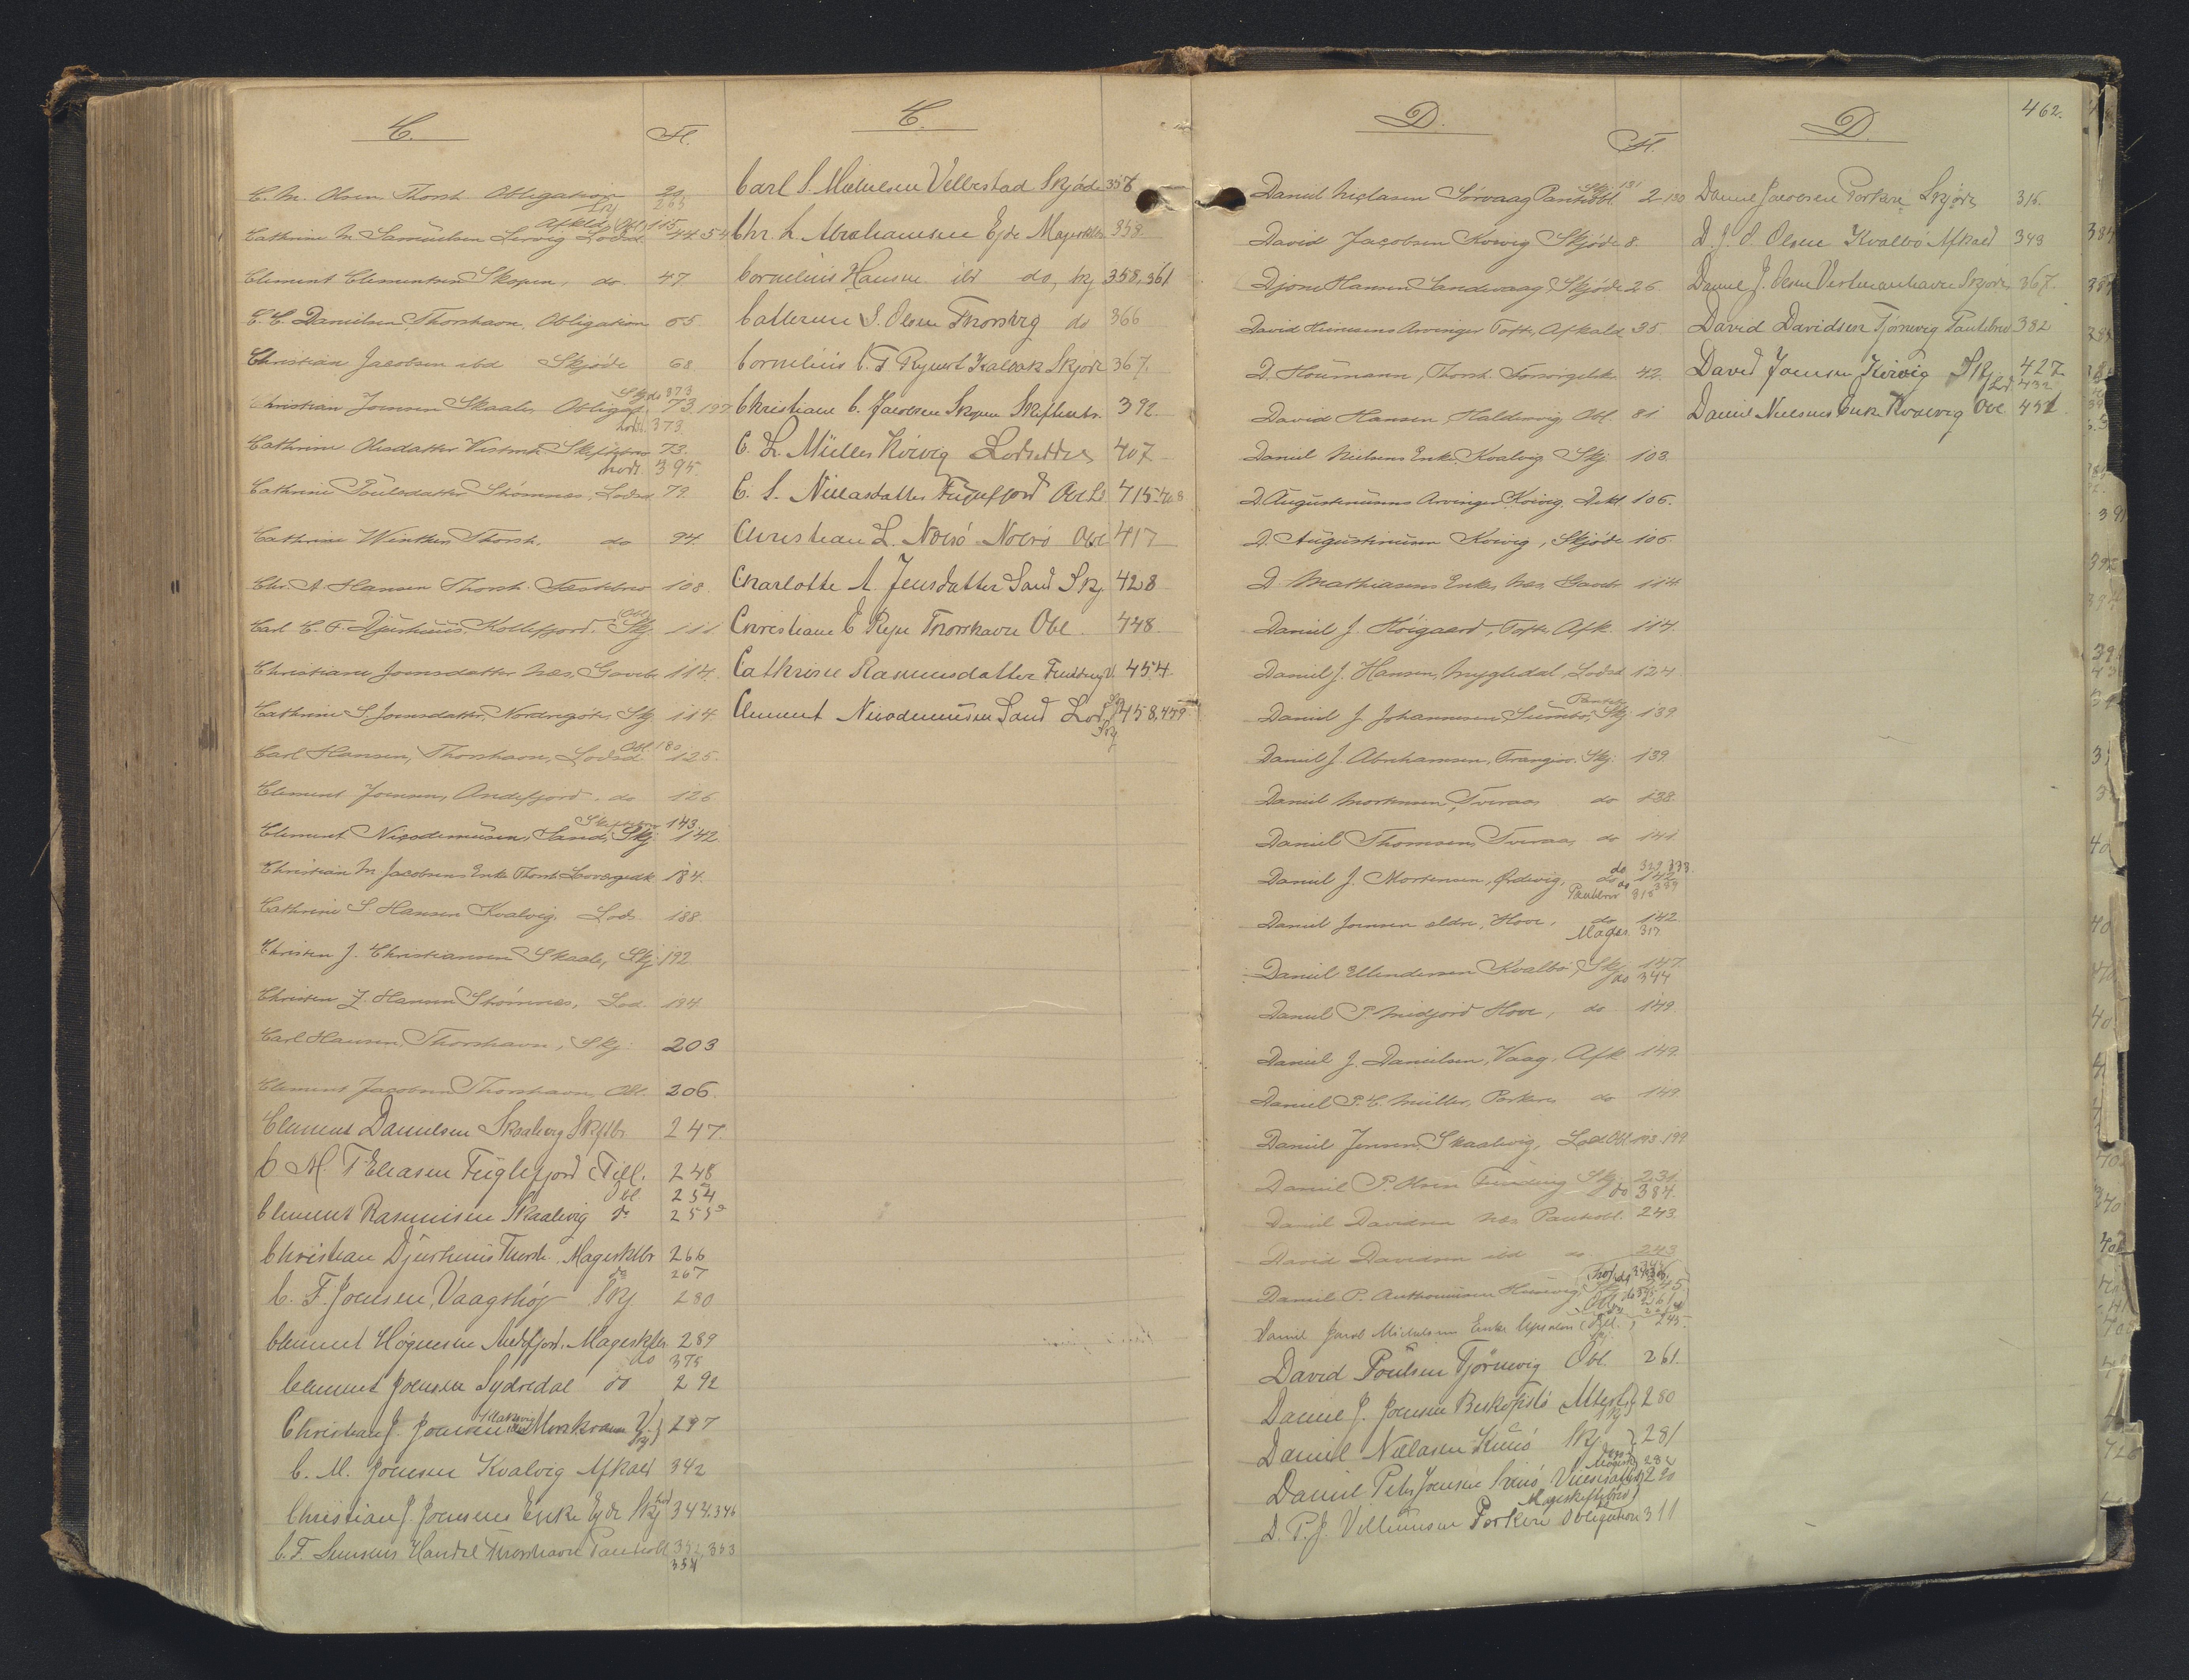 C.
Fl.
C. M. Olsen Thorsh. Obligation 20
Skj 265
Afkld. Obl. 115
Cathrine M Samuelsen Lervig Lodsd 44.54
Clement Clementsen Skopen, do. 47
C. C. Danielsen, Thorshavn, Obligation 65
Christian Jacobsen ibd Skjøde 68
Skjøde 373
Christian Joensen Skaale, Obligat. 73.197
Lods. 373
Cathrine Olesdatter Vestmh. Skiftebrev 73.
395
Cathrine Poulsdatter Strømnæs, Lodsd 79.
Cathrine Winther Thorsh. do 94.
Chr. A. Hansen Thorsh. 108.
Obl
Carl C. F. Djurhuus, Kollefjord, Skj. 111
Christiane Joensdatter Næs, Gaveb. 114.
Cathrine S. Joensdatter, Nordregøte, Skj. 114
Obl. 180
Carl Hansen, Thorshavn, Lodsd 125.
Clement Joensen, Andefjord, do 126
Skiftebrev 143.
Clement Nicodemussen, Sand, Skj. 142
Christian M. Jacobsens Enke Thorsh. 184.
Cathrine S Hansen Kvalvig, Lods. 188.
Christen J. Christiansen Skaale, Skj. 192.
Christen J. Hansen Strømnæs, Lod. 194.
Carl Hansen, Thorshavn, Skj. 203
Clement Jacobsen Thorshavn, Obl. 206.
Clement Danielsen Skaalevig Skftbr. 247.
C M. T Eliasen Fuglefjord Till. 248
Obl 254
Clement Rasmussen Skaalevig do 255
Christian Djurhuus Thorsh. Mageskftbr 266
do 267
C. F. Joensen, Vaagshøj Skj 280
Clement Høgnesen Andefjord. Mageskftbr. 289
do 375
Clement Joensen Sydredal do 292
Klaksvig
Christian J. Joensen 297
Skj
C. M. Joensen Kvalvig Afkald 342
Christian J. Joensens Enke Ejde Skj 344.346
C. F. Handel Thorshavn Pantobl 352, 353
354
C.
Carl S. Michelsen Velbestad Skjøde 357
Chr. L. Abrahamsen Ejde Mageskftbr 358
Cornelius Hansen ibd do, Skj 358, 361
Cathrine S. Olsen Thorsvig do 366
Cornelius C. F Kalbak Skjøde 367.
Christiane C. Jacobsen Skopen Skiftebr. 392
C. L. Müller Kvivig Lodseddel 407
C. S. Niclasdatter Fuglefjord Obl 415.
Christian L. Nolsø Nolsø Obl 417
Charlotte A. Jensdatter Sand Skj. 428
Christiane E Thorshavn Obl. 448.
Cathrine Rasmusdatter 454
Clement Nicodemussen Sand Lods. 458.459
Skj
D.
Fl.
Skj. 131
Daniel Niclasen Sørvaag Pantobl. 2.130
David Jacobsen Kvivig Skjøde 8.
Djone Hansen Sandevaag, Skjøde 26.
David Arvinger Tofte, Afkald 35.
D. Houmann, Thorsh. 42.
David Hansen, Haldervig, Obl. 81
Daniel Nielsens Enke Kvalvig Skj. 103.
D. Augustinusens Arvinger Kvivig 106.
D. Augustinusen Kvivig, Skjøde 106.
D. Mathiasens Enke Næs, Gavebr. 114.
Daniel J. Høigaard, Tofte, Afk. 114.
Daniel J. Hansen, Mygledal, Lodsd 124
Daniel J. Johannesen, Sumbø, Skj. 139.
Daniel J. Abrahamsen, Frangisv. Skj. 139.
Daniel Mortensen, Tveraa, do 138.
Daniel Thomsen, Tveraa, do 141.
do 329.333
Daniel J. Mortensen, Ørdevig, do 142
Pantebrev 318
Daniel Joensen ældre, Hove, do 142.
Mages. 317
Daniel Ellendersen Kvalbø, Skj. 147.
do 344
Daniel P. Midjord Hove, do 149.
Daniel J. Danielsen, Vaag, Afk. 149.
Daniel P. C. Müller, Porkere do 149.
Daniel Jensen Skaalevig, Lod. Obl. 193.199
Daniel P. Olsen Funding Skj. 231.
do 384.
Daniel Davidsen Næs Pantobl. 243.
David Davidsen ibd do. 243
Daniel P. Anthoniussen Husevig, Skj. 245
Daniel Jacob Michelsens Enke 245.
David Poulsen Tjørnevig Obl. 261.
Daniel J. Joensen 280
Daniel Niclasen Kunø Skj 281
Daniel Peter Joensen Svinø 290
Mageskiftebrev
D. P. J. Villumsen Porkere Obligation 311
D.
462.
Daniel Jacobsen Porkere Skjøde 316.
D. J. S. Olsen Kvalbø Afkald 343
Daniel J. Olsen Vestmanhavn Skjøde 367.
David Davidsen Tjørnevig Pantebrev 382
David Joensen Kvivig Skj. 427
Lod. 432
Daniel Nielsens Enke Kvalvig Obl. 451